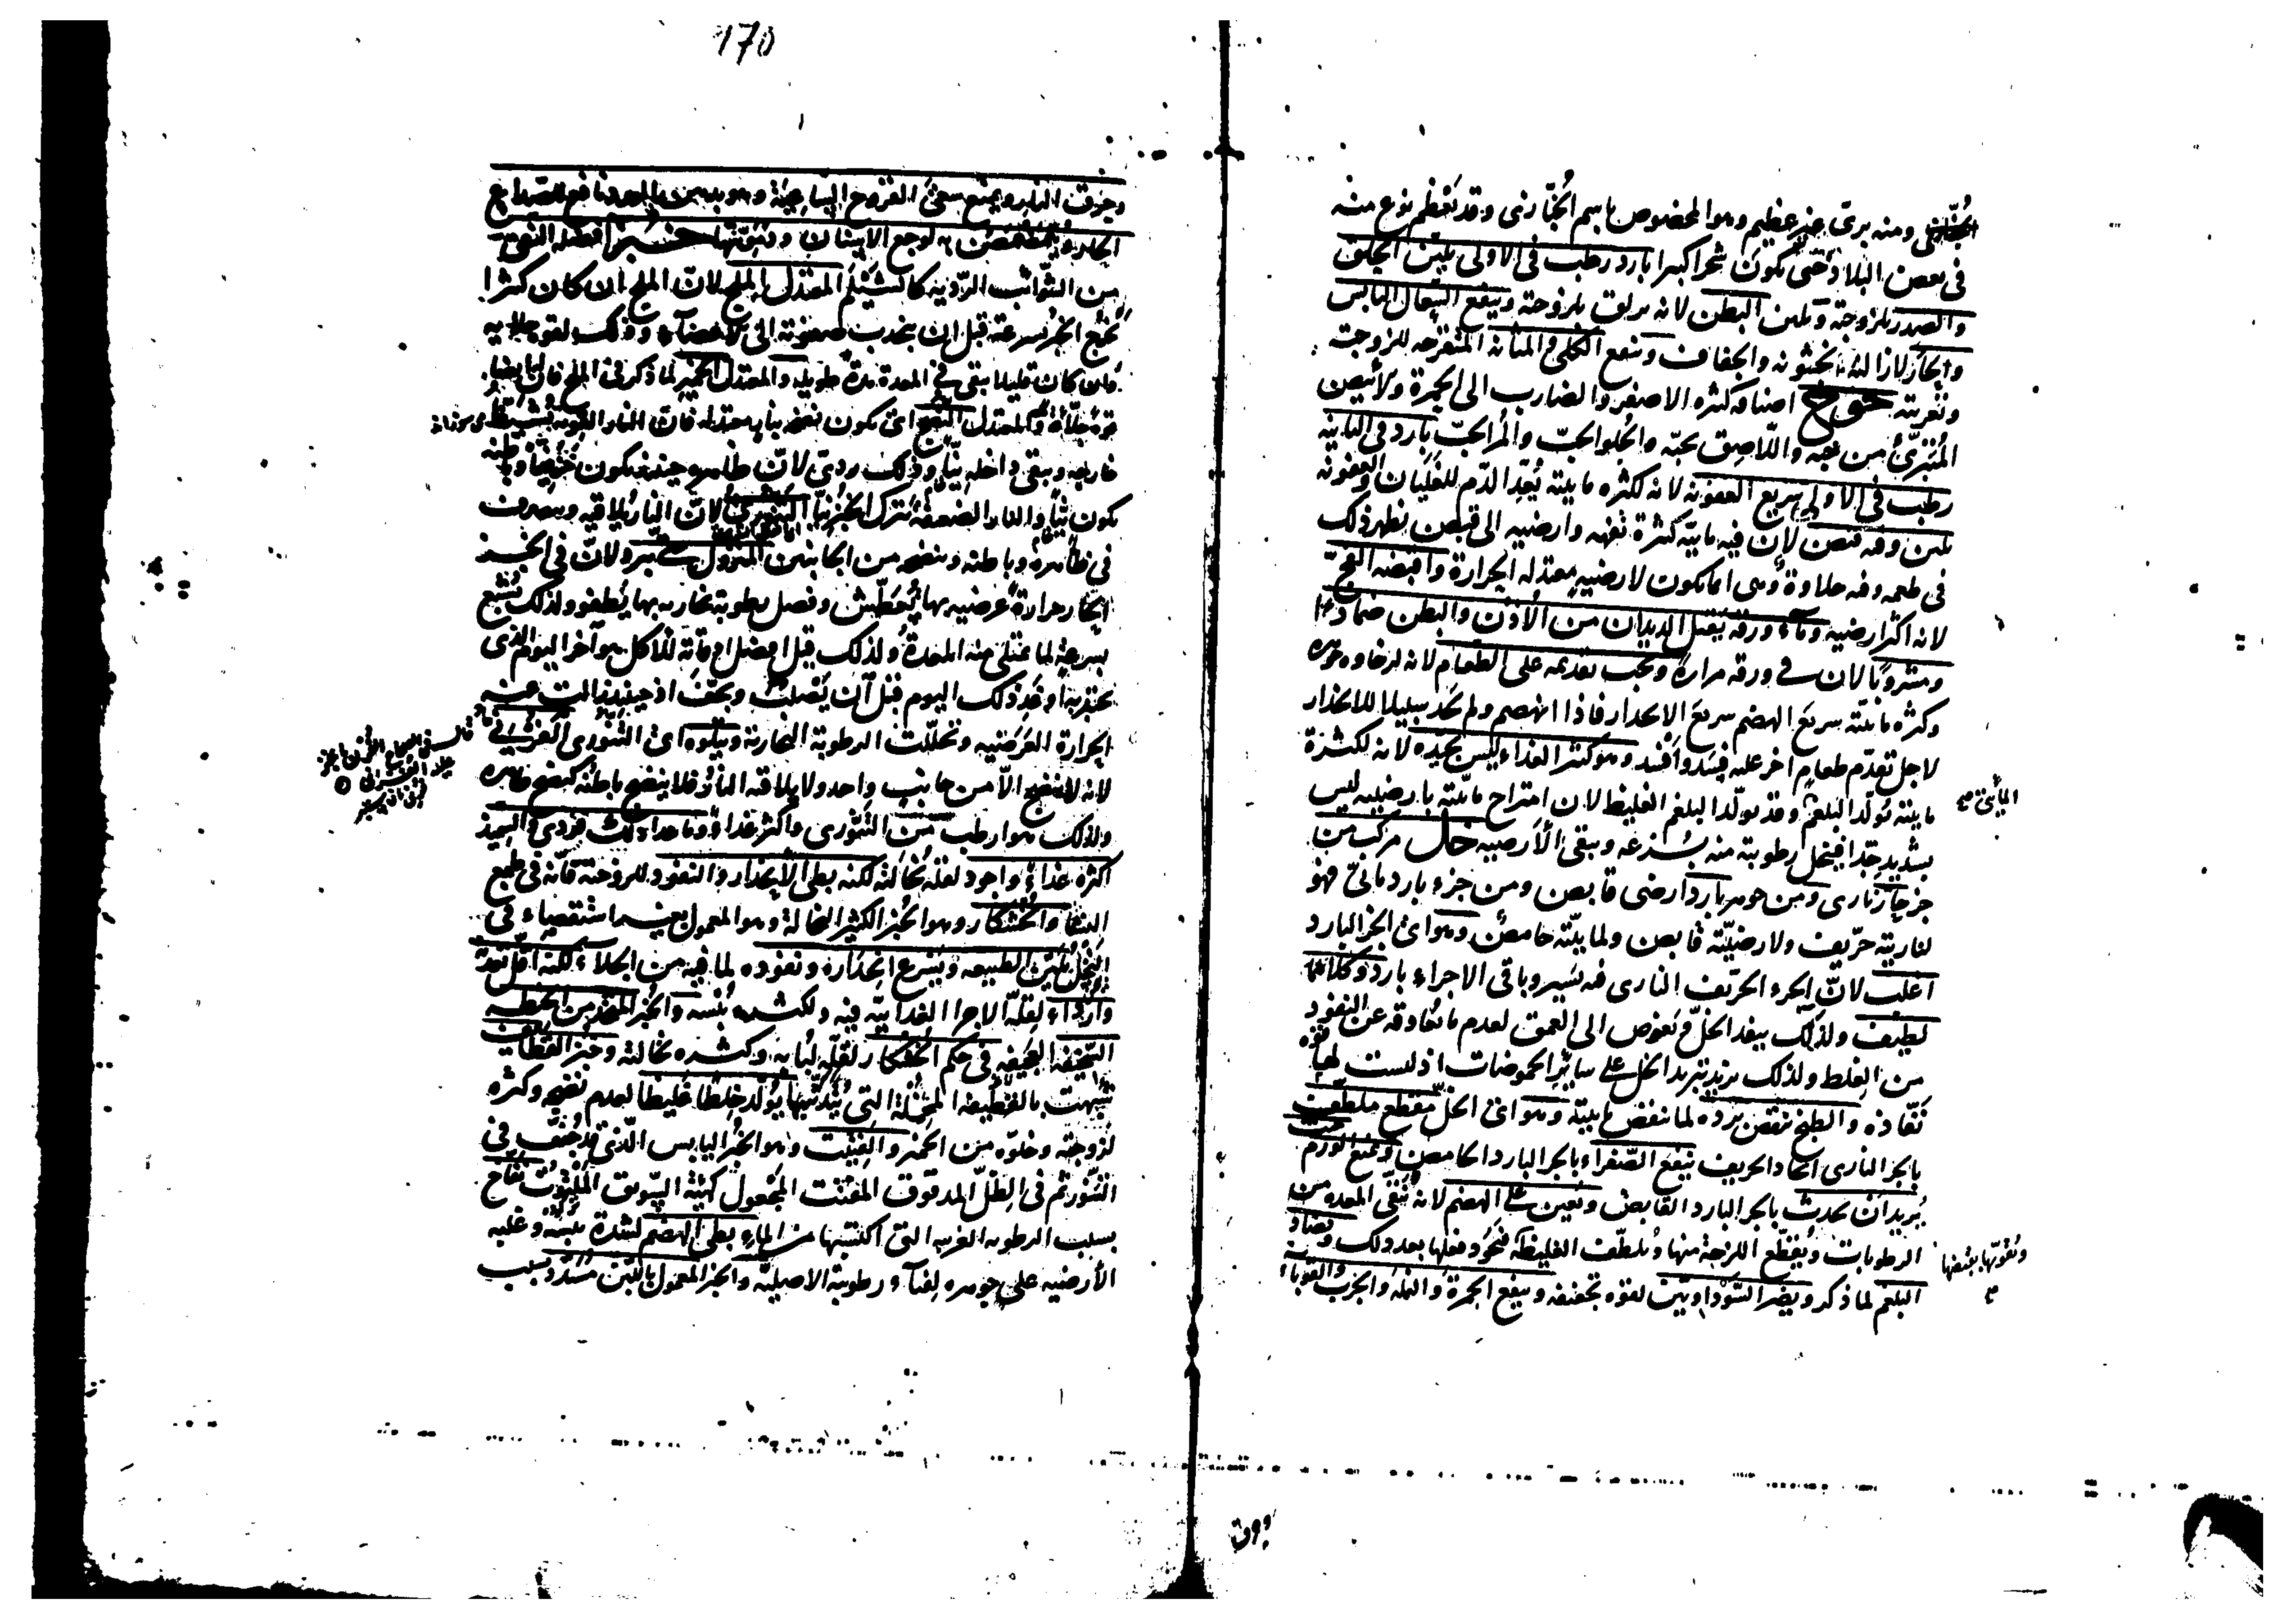 170
الخبازى ومنه برى غير عظيم وهو المخصوص باسم الخبازى وقد تعظم نوع منه
فى بعض البلاد حتى يكون شجرا كبيرا بارد رطب فى الاولى يلين الحلق
والصدر بلزوجته ويلين البطن لانه يزلق بلزوجته وينفع السعال اليابس
والحار لازالته الخشونه والجفاف وينفع الكلى والمثانه المتقرحه للزوجته
وتغريته خوخ اصنافه كثره الاصفر والضارب الى الحمرة والابيض
المتبرئ من حبه واللاصق بحبه والحلو الحب والمر الحب بارد فى الثانية
رطب فى الاولى سريع العفونه لانه لكثره مائيته يعد الدم للغليان والعفونه
ملين وفيه قبض لان فيه مائية كثرة تفهه وارضيه الى قبض يظهر ذلك
فى طعمه وفيه حلاوة وهى انما تكون لارضيه معتدله الحرارة واقبضه الفج
لانه اكثر ارضيه وماء ورقه يقتل الديدان من الاذن والبطن ضمادا
ومشروبا لان فى ورقه مرارة ويجب تقديمه على الطعام لانه لرخاوه جوهره
وكثره مائيته سريع الهضم سريع الانحدار فاذا انهضم ولم يجد سبيلا للانحدار
لاجل تقدم طعام اخر عليه فسد وافسد وهو كثير الغذاء ليس بجيده لانه لكثرة
مائيته يولد البلغم وقد يولد البلغم الغليظ لان امتزاج مائيته بارضيته ليس
المائى صح
بشديد جدا فيتحل رطوبته منه بسرعه ويبقى الارضيه خل مركب من
جزء حار نارى ومن جوهر بارد ارضى قابض ومن جزء بارد مائى فهو
لناريته حريف ولارضيته قابض ولمائيته حامض وهو اى الجزء البارد
اغلب لان الجزء الحريف النارى فيه يسير وباقى الاجزاء بارد وكلاهما
لطيف ولذلك ينفذ الخل ويغوص الى العمق لعدم ما يعاوقه عن النفوذ
من الغلظ ولذلك يزيد تبريد الخل على سائر الحموضات اذ ليست لها قوه
نفاذه والطبخ ينقص برده لما ينقص مائيته وهو اى الخل مقطع ملطف
بالجزء النارى الحاد الحريف ينفع الصفراء بالجزء البارد الحامض ويمنع الورم حيث
يريد ان يحدث بالجزء البارد القابض ويعين على الهضم لانه ينقى المعده من
الرطوبات ويقطع اللزجة منها ويلطف الغليظه فيجود فعلها بعد ذلك ويضاد
ويقويها بقبضها صح
البلغم لما ذكر ويضر السوداويين لقوه تجفيفه وينفع الجمرة والنمله والجرب والقوباء
وحرق
وحرق النار ويمنع سعى القروح الساعية وهو بدهن الورد نافع للصداع
الحار ويتمضمض به لوجع الاسنان ويقويها خبز افضله النقى
من الشوائب الرديه كالشيلم المعتدل الملح لان الملح ان كان كثرا
يخرج الخبز بسرعة قبل ان ينجذب صفوته الى الاعضاء وذلك لقوه جلائه
فان كان قليلا يبقى فى المعدة مدة طويله والمعتدل الخمير لما ذكر فى الملح فان له ايضا
قوة جلاءة والمعتدل النضج اى يكون نضجه بنار معتدله فان النار القويه تشيط
خارجه ويبقى داخله نيا وذلك ردى لان ظاهره حينئذ يكون محترقا وباطنه
يكون نيا والنار الضعيفة تترك الخبز نيا التنورى لان النار يلاقيه ويتصرف
فى ظاهره وباطنه وينضجه من الجانبين المتروك حتى يبرد ولان فى الخبز
الحار حرارة عرضيه بها يعطش وفضل رطوبة بخاريه بها يطفو ولذلك يشبع
بسرعة لما يمتلى منه المعدة ولذلك قيل افضل اوقاته للاكل هو آخر اليوم الذى
يخبز فيه او غد ذلك اليوم قبل ان يصلب ويجف اذ حينئذ زالت عنه
الحرارة العرضيه وتحللت الرطوبة البخارية ويتلوه اى التنورى الفرنى
لانه لا ينضج الا من جانب واحد ولا يلاقيه النار فلا ينضج باطنه كنضج ظاهره
ولذلك هو ارطب من التنورى واكثر غذاء وما عداه ذلك فردى والسميذ
اكثره غذاء واجود لقله نخالته لكنه بطى الانحدار والنفوذ للزوجته فانه فى طبع
النشا والخشكار وهو الخبز الكثير النخالة وهو المعمول بغير استقصاء فى
النخل يلين الطبيعه ويسرع انحداره ونفوذه لما فيه من الجلاء لكنه اقل تغذية
واردا لقلة الاجزا الغذائية فيه ولكثرة يبسه والخبز المتخذ من الحنطه
السخيفه العجيفه فى حكم الخشكار لقلة لبابه وكثره نخالته وخبز القطائف
شبهت بالقطيفه المخملة التى يتدثر بها يولد خلطا غليظا لعدم نضجه وكثره
لزوجته وخلوه من الخمير والفتيت وهو الخبز اليابس الذى قد جفف فى
التنور ثم فى الظل المدقوق المفتت المجعول كهيئة السويق الملتوت نفاخ
بسبب الرطوبه الغريبه التى اكتسبها من الماء بطى الهضم لشدة يبسه وغلبه
الارضيه على جوهره لفناء رطوبته الاصلية والخبز المعمول باللبن مسدد بسبب